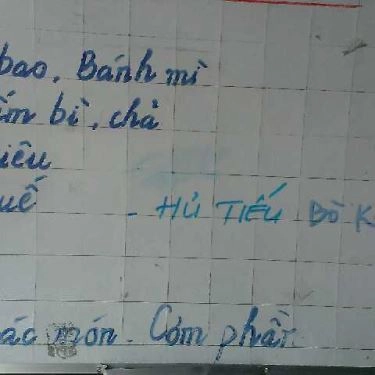 bao, Bánh mì
ấm bì, chả
iêu
uế
- HỦ TIẾU BÒ K
các món - Cơm phần